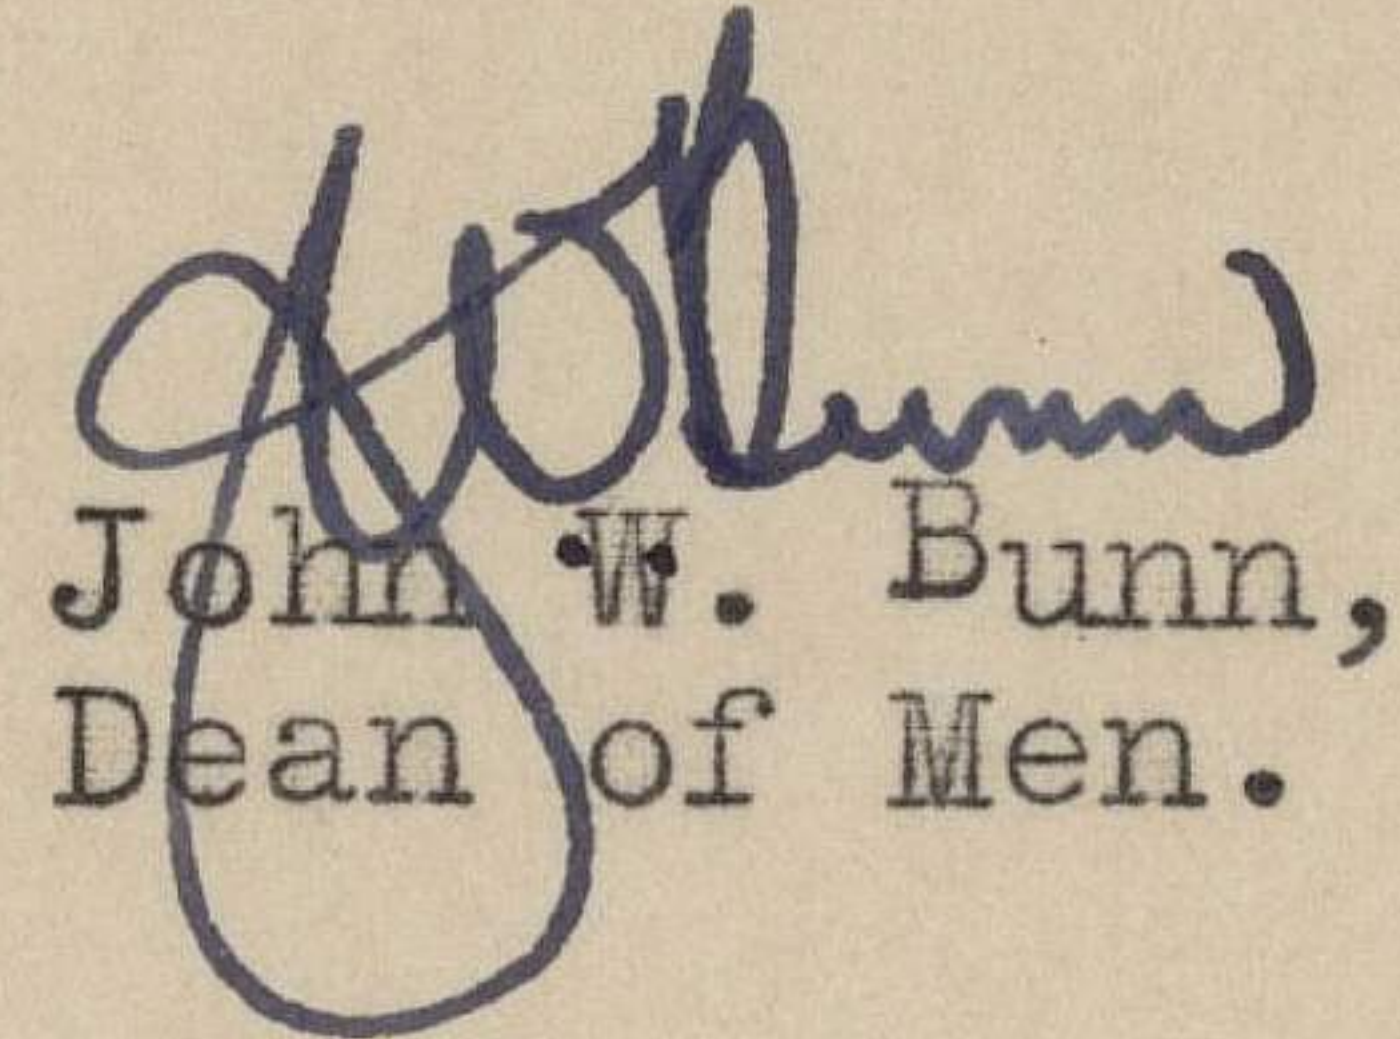 JWBunn
John W. Bunn,
Dean of Men.